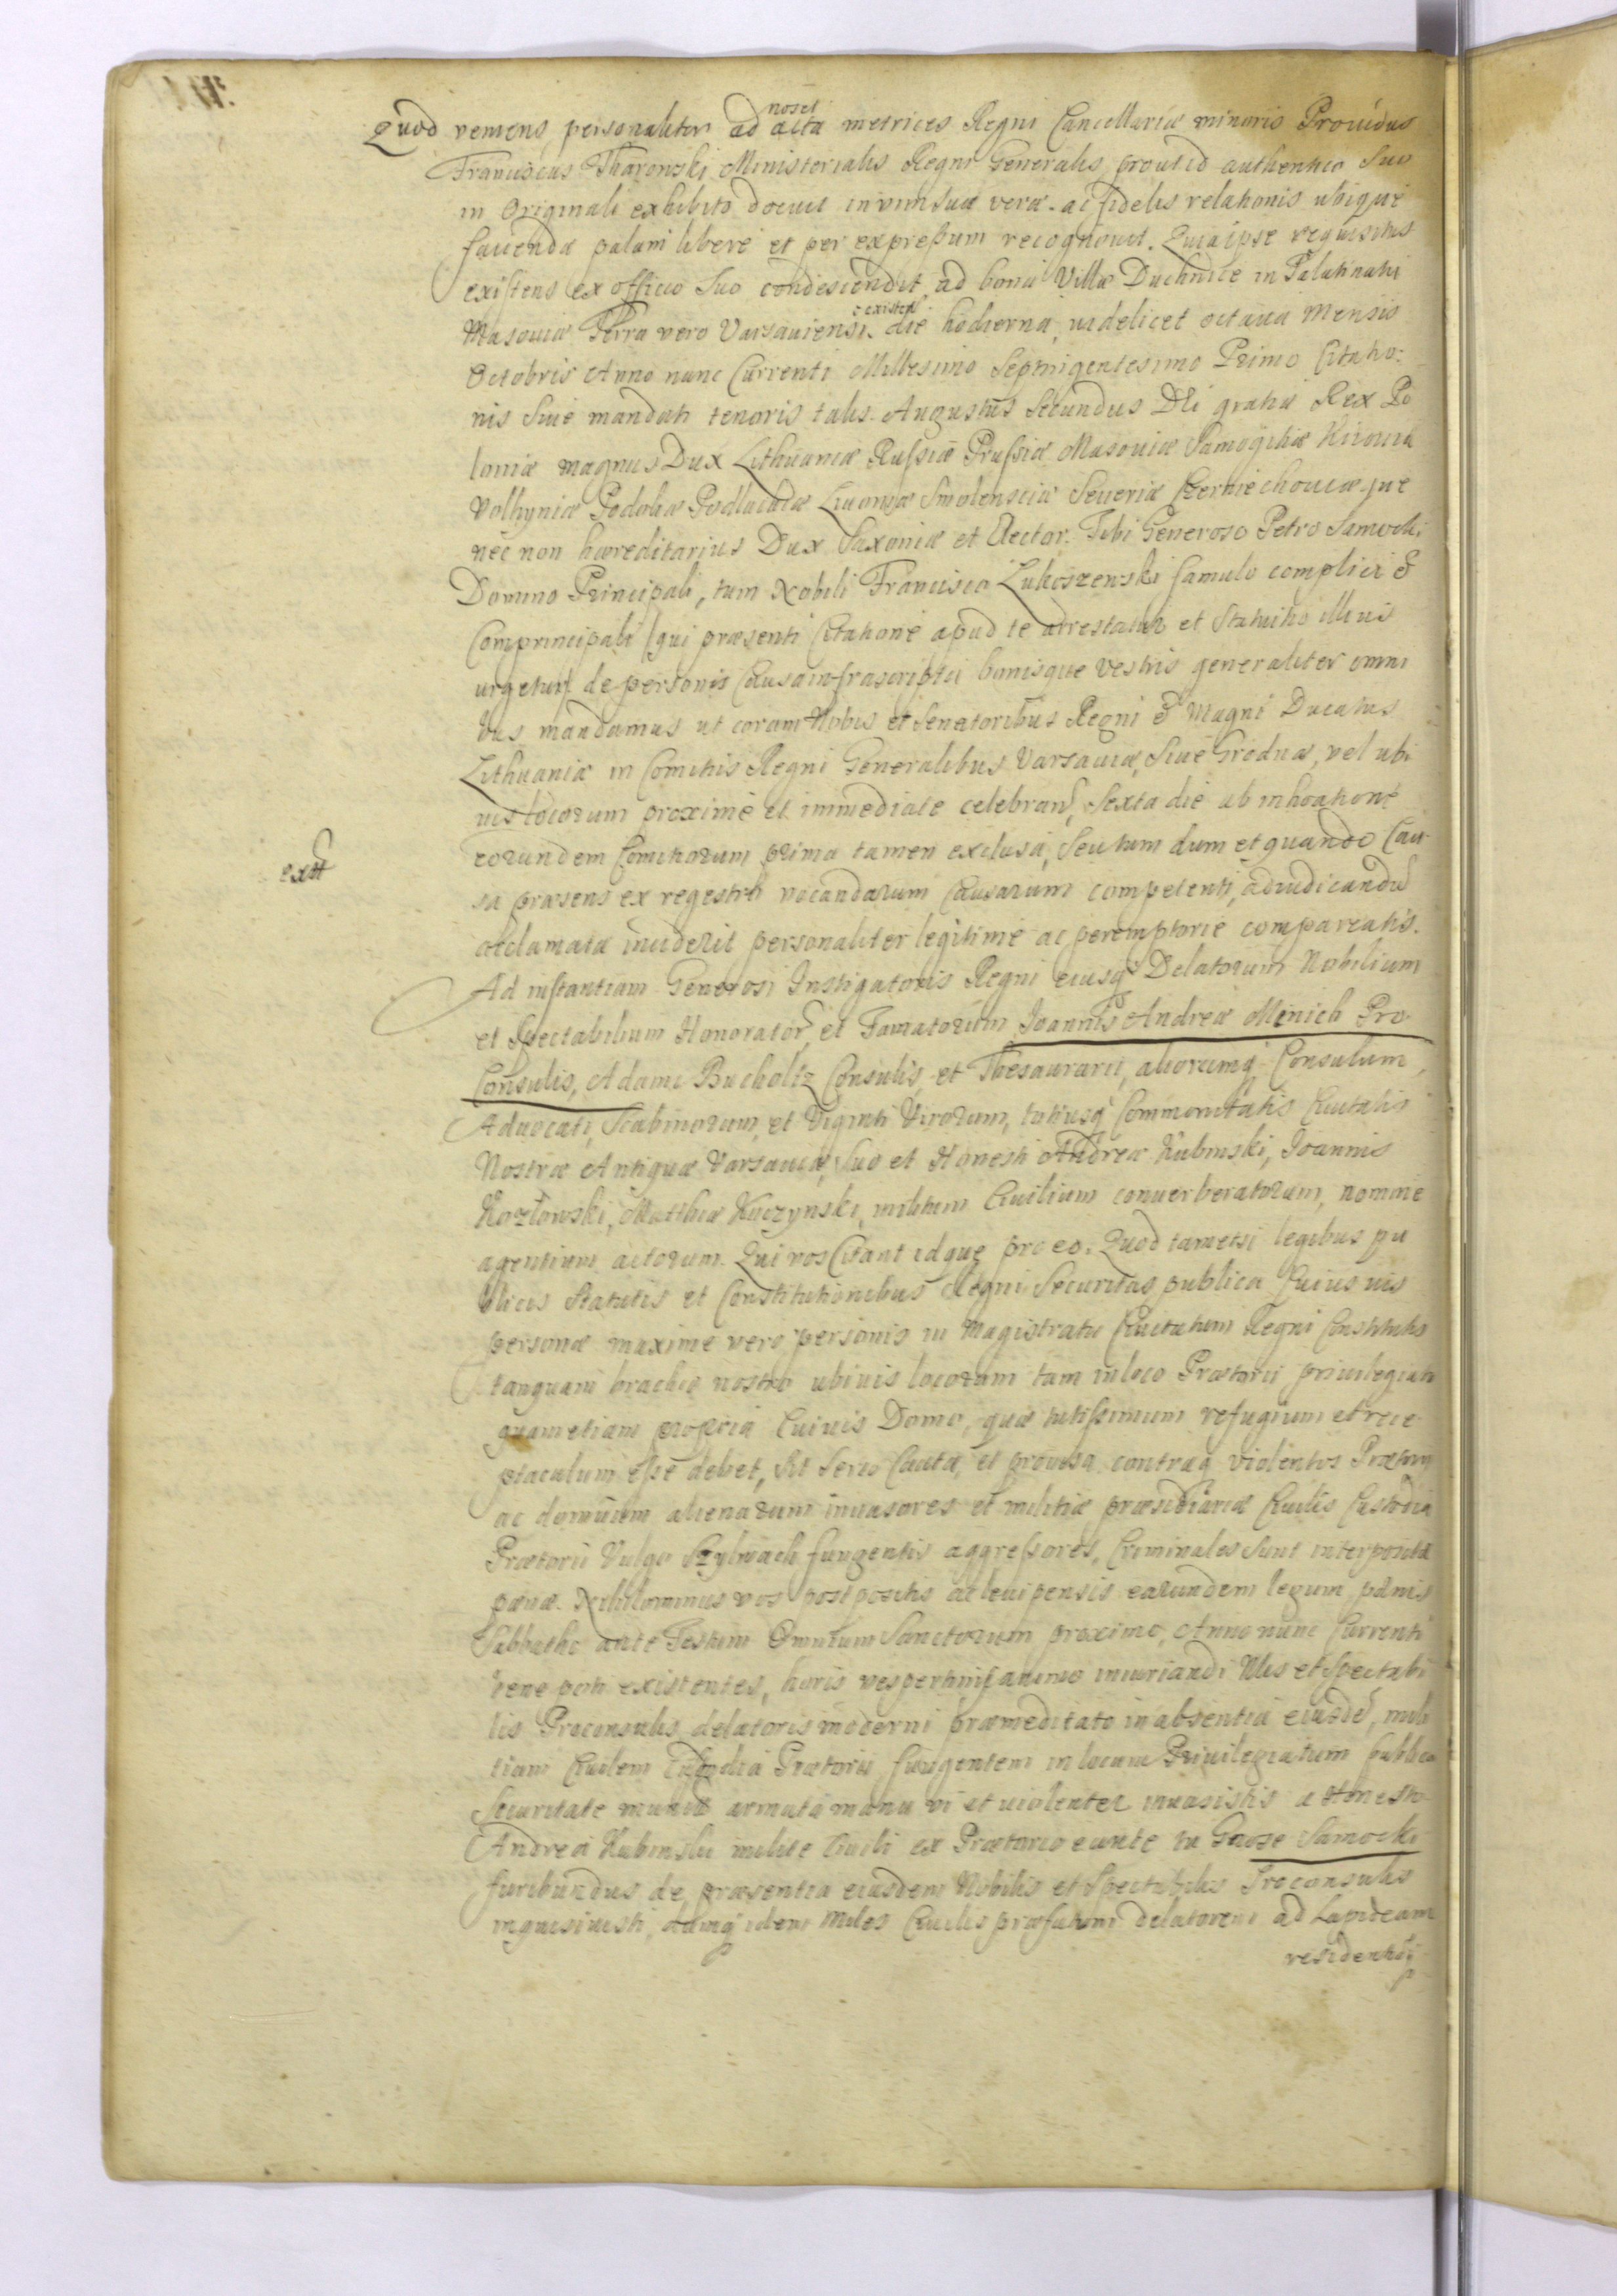 Quod veniens personaliter ad acta metrices Regni Cancellariæ minoris Prouidus
Franciscus Tharowski Ministerialis Regni Generalis prout id authentico suo
in Originali exhibito docuit in vim suæ veræ ac fidelis relationis ubique
fauendæ palam libere et per expressum recognouit. Quia ipse requisitus
existens ex officio suo condescendit ad bona Villæ Duchnice in Palatinatu
existen
Masouiæ Terra vero Varsauiensi die hodierna, uidelicet octaua Mensis
Octobris Anno nunc Currenti Millesimo Septingentesimo Primo Citatio:
nis siue mandati tenoris talis. Augustus Secundus DEi gratia Rex Po
loniæ magnus Dux Lithuaniæ Russiæ Prussiæ Masouiæ Samogitiæ Kiiouiæ
Volhyniæ Podoliæ Podlachiæ Liuoniæ Smolensciæ Seueriæ Czerniechouiæque
nec non hæreditarius Dux Saxoniæ et Elector. Tibi Generoso Petro Samocki
Domino Principali, tum Nobili Francisco Lukoszewski famulo complici &
Comprincipali (qui præsenti Citatione apud te arrestatur et Statuitio illius
urgetur) de personis Causa infrascripta bonisque vestris generaliter omni
bus mandamus ut coram Nobis et Senatoribus Regni & Magni Ducatus
Lithuaniæ in Comitiis Regni Generalibus Varsauiæ, Siue Grodnæ, vel ubi
uis locorum proxime et immediate celebran, sexta die ab inhoatione
eorundem Comitiorum prima tamen exclusa, seu tum dum et quando Cau
extt
sa præsens ex regestro vocandarum Causarum competenti, adiudicandu
acclamata inciderit personaliter legitime ac peremptorie compareatis.
Ad instantiam Generosi Instigatoris Regni eiusq Delatorum Nobilium
et Spectabilium Honorator, et Famatorum Joannis Andreæ Minich Pro
Consulis, Adami Bucholtz Consulis et Thesaurarii, aliorumq Consulum,
Aduocati, Scabinorum, et Viginti Virorum, totiusq Communitatis Ciuitatis
Nostræ Antiquæ Varsauiæ, suo et Honesti Andreæ Kubinski, Joannis
Kozłowski, Matthiæ Kuczynski, militum Ciuilium conuerberatorum, nomine
agentium actorum. Qui vos Citant idque pro eo. Quod tametsi legibus pu
blicis Statutis et Constitutionibus Regni Securitas publica Cuius uis
personæ maxime vero personis in Magistratu Ciuitatum Regni Constitutis
tanquam brachio nostro ubiuis locorum tam in loco Prætorii priuilegiato
quam etiam propria Cuiuis Domo, quæ tutissimum refugium et rece
ptaculum esse debet, sit serio Cauta, et prouisa contraq violentos Prætorii
ac domuum alienarum inuasores et militiæ præsidiariæ Ciuilis Custodia
Prætorii Vulgo Szylwach fungentis aggressores, Criminales sunt interpositæ
pœnæ. Nihilominus vos postpositis ac leuipensis earundem legum pœnis
Sabbatho ante Festum Omnium Sanctorum proximo, Anno nunc Currenti
bene poti existentes, horis vespertinis animo iniuriandi Nlis et Spectabi
lis Proconsulis delatoris moderni præmeditato in absentia eiusde, mili
tiam Ciuilem Custodia Prætorii fungentem in locum Priuilegiatum publica
Securitate munitu armata manu vi et uiolenter inuasistis a Honesto
Andrea Kubinski milite Ciuili ex Prætorio eunte tu Gnose Samocki
furibundus de præsentia eiusdem Nobilis et Spectabilis Proconsulis
inquisiuisti, dumq idem Miles Ciuilis præfatum delatorem ad Lapideam
residentiæ